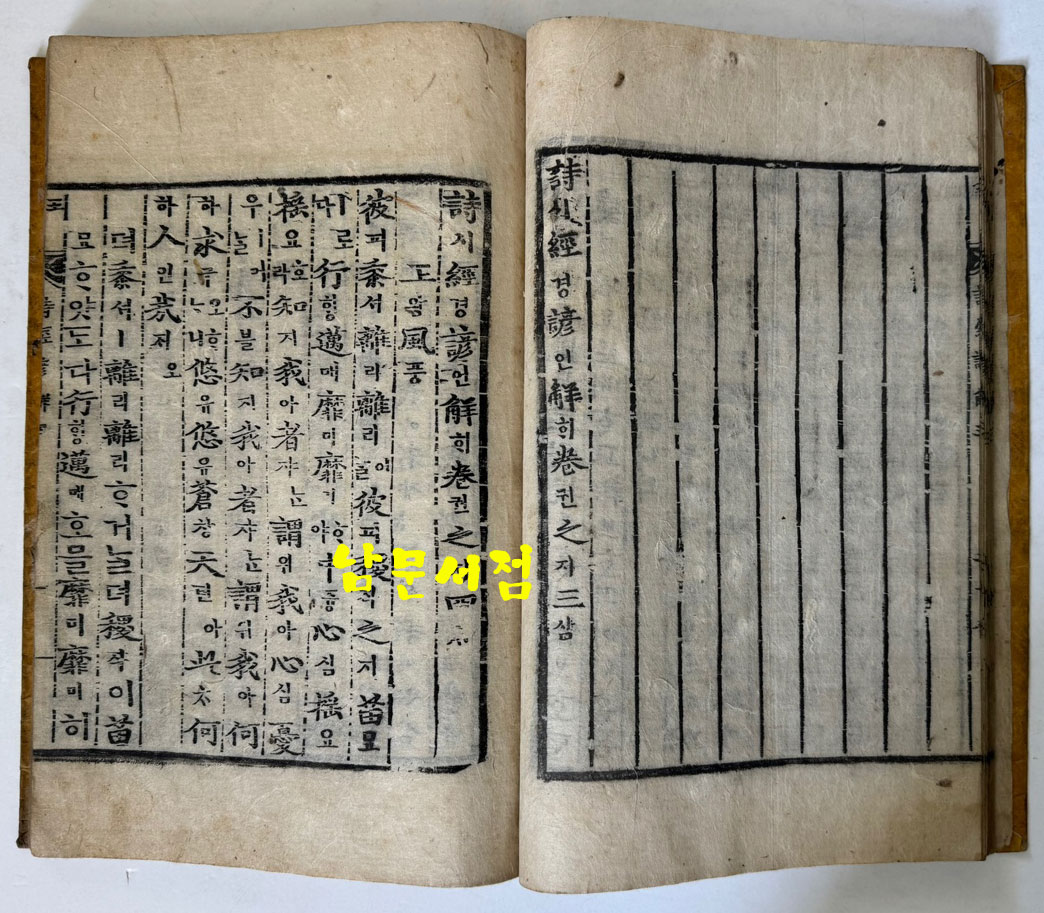 詩시經경諺언解ᄒᆡ卷권之지三삼
詩시經경諺언解ᄒᆡ卷권之지四ᄉᆞ
王왕風풍
彼피黍셔離리離리어ᄂᆞᆯ彼피稷직之지苗묘
ㅣ로行ᄒᆡᆼ邁매靡미靡미ᄒᆞ야中듕心심搖요
搖요호라知지我아者쟈ᄂᆞᆫ謂위我아心심憂
우ㅣ어ᄂᆞᆯ不블知지我아者쟈ᄂᆞᆫ謂위我아何
하求구오ᄒᆞᄂᆞ니悠유悠유蒼창天텬아此ᄎᆞ何
하人인哉ᄌᆡ오
뎌黍셔ㅣ離리離리ᄒᆞ거ᄂᆞᆯ뎌稷직이苗
묘ᄒᆞ얏도다行ᄒᆡᆼ邁매호ᄆᆞᆯ靡미靡미히
詩經諺解
남문서점